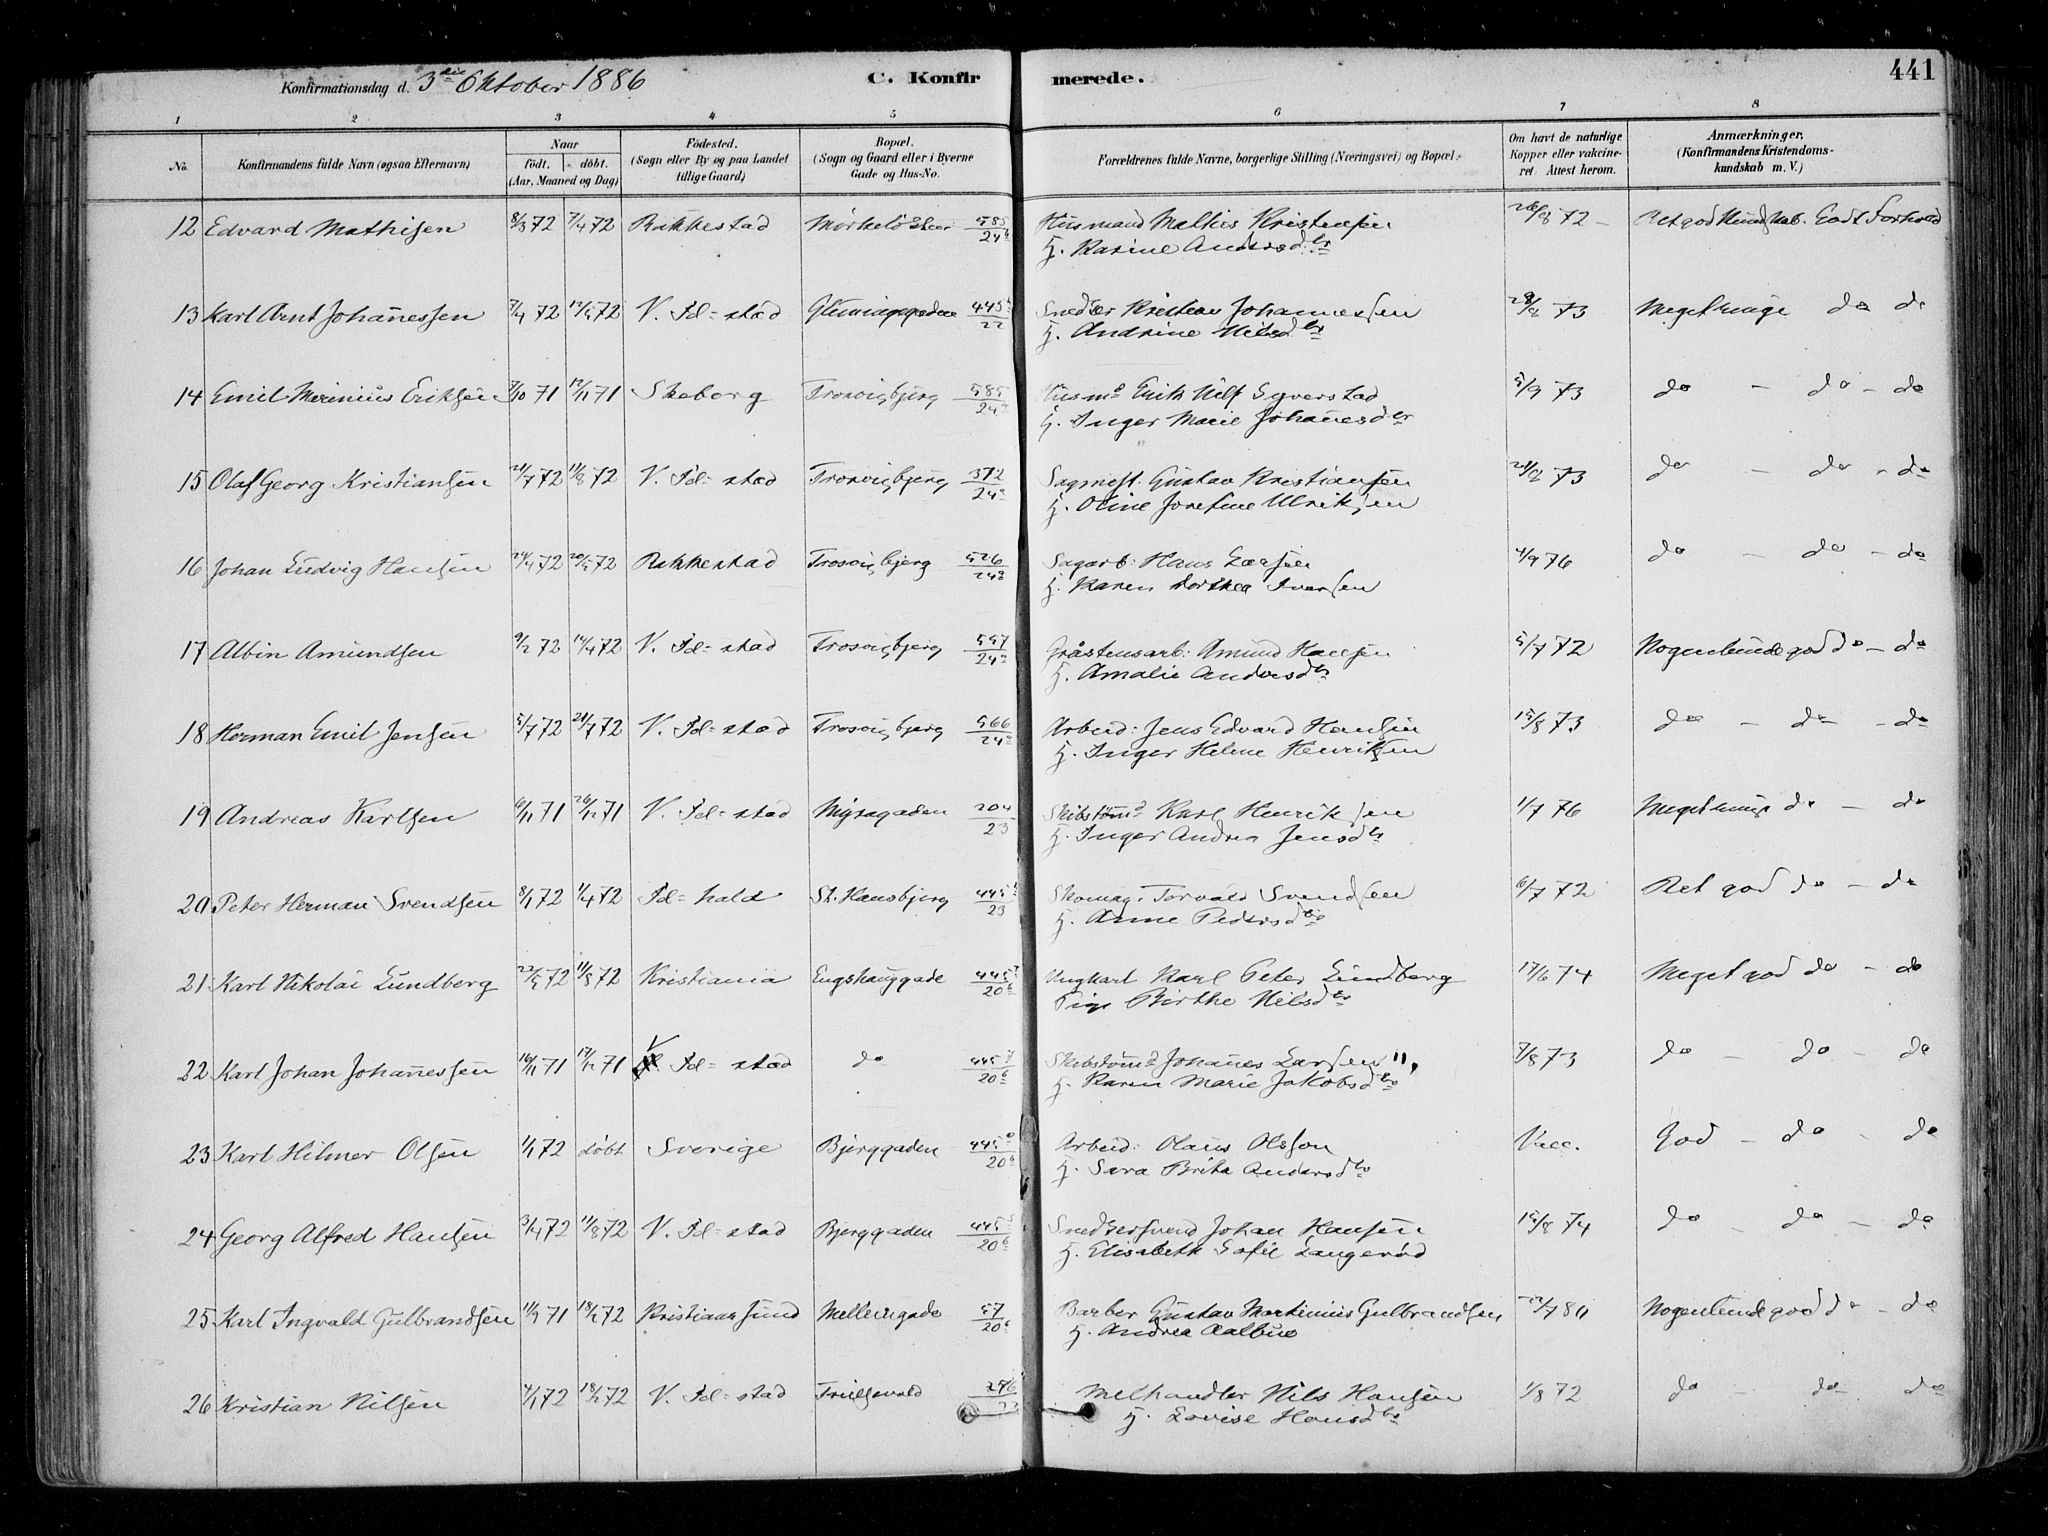 Konfirmationsdag d. 3die Oktober 1886 C. Konfirmerede. 441
1 2 3 4 5 6 7 8
No. Konfirmandens fulde Navn (ogsaa Efternavn) Naar født. døbt. (Aar, Maaned og Dag) Fødested. (Sogn eller By og paa Landet tillige Gaard) Bopæl. (Sogn og Gaard eller i Byerne Gade og Hus-No. Forældrenes fulde Navne, borgerlige Stilling (Næringsvei) og Bopæl. Om havt de naturlige Kopper eller vakcineret. Attest herom. Anmærkninger, (Konfirmandens Kristendomskundskab m. V.)
12 Edvard Mathisen 8/3 72 7/4 72 Rakkestad 585/24 Husmand Mathis Kristensen 26/8 72 Ret god Kundskab. Godt Forhold
H. Karine Andersdtr
13 Karl Arnt Johanessen 7/4 72 12/5 72 V. Fd=stad Glemmegaden 445/22 Snedker Kristian Johannessen 28/8 73 Meget ringe do do
H. Andrine Nilsdtr
14 Emil Marinius Eriksen 7/10 71 12/11 71 Skeberg Trosvigbjerg 585/24 Husmd Erik Ulf Syverstad 5/9 73 do - do - do
H. Inger Marie Johanesdtr
15 Olaf Georg Kristiansen 21/7 72 11/8 72 V. Fd=stad Trosvigbjerg 372/24 Sagmest. Gustav Kristiansen 73 do - do - do
H. Oline Josefine Ulriksen
16 Johan Ludvig Hansen 24/4 72 20/5 72 Rakkestad Trosvigbjerg 526/24 Sagarb: Hans Larsen 4/9 76 do - do - do
H. Karen Dorthea Iversen
17 Albin Amundsen 9/2 72 14/4 72 V. Fd=stad Trosvigbjerg 557/24 Gråstensarb: Amund Hansen 5/7 72 Nogenlunde god do - do
H. Amalie Andersdtr
18 Herman Emil Jensen 5/7 72 21/7 72 V. Fd=stad Trosvigbjerg 566/24 Arbeid: Jens Edvard Hansen 15/8 73 do - do - do
H. Inger Helene Henriksen
19 Andreas Karlsen 6/11 71 26/12 71 V. Fd=stad Myragaden 204/23 Skibstømd Karl Henriksen 1/7 76 Meget ringe do - do
H. Inger Andrea Jensdtr
20 Peter Herman Svendsen 8/1 72 1/4 72 Fd=hald St. Hansbjerg 445/23 Skomag. Torvald Svendsen 6/7 72 Ret god do - do
H. Anne Pedersdtr
21 Karl Nikolai Lundberg 22/5 72 11/8 72 Kristiania Engshauggade 445/20 Ungkarl Karl Peter Lundberg 17/6 74 Meget god do - do
Pige Birthe Nilsdtr
22 Karl Johan Johanessen 16/11 71 17/12 71 V Fd=stad do 445/20 Skibstømd Johanes Larsen 7/8 73 do - do - do
H. Karen Marie Jakobsdtr
23 Karl Hilmer Olsen 1/1 72 døbt Sverige Bjerggaden 445/20 Arbeid: Olaus Olsson Vacc. God - do - do
H. Sara Brita Andersdtr
24 Georg Alfred Hansen 3/4 72 11/8 72 V. Fd=stad Bjerggaden 445/20 Snedkersvend Johan Hansen 15/8 74 do - do - do
H. Elisabeth Sofie Langerød
25 Karl Ingvald Gulbrandsen 11/9 71 18/2 72 Kristiansund Mellemgade 57/20 Barber Gustav Martinius Gulbrandsen Nogenlunde god do - do
H. Andrea Aalbue
26 Kristian Nilsen 4/1 72 18/2 72 V. Fd=stad 276/23 Melhandler Nils Hansen 1/8 72 do - do - do
H. Lovise Hansdtr